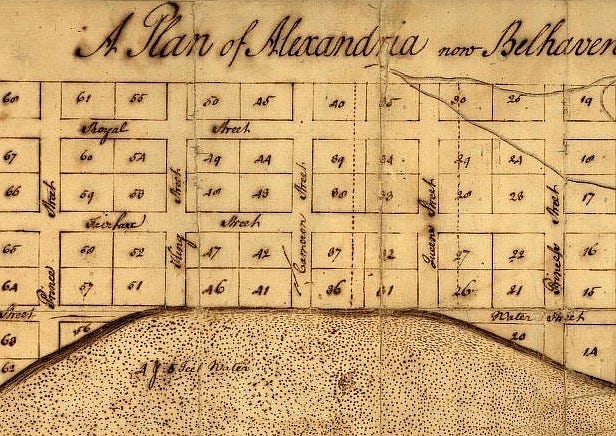 A Plan of Alexandria now Belhaven
68 61 55 50 45 40 35 30 25 19
Royal Street
67 60 54 49 44 39 34 29 24 18
66 59 53 48 43 38 33 28 23 17
Fairfax Street
65 58 52 47 42 37 32 27 22 16
64 57 51 46 41 36 31 26 21 15
Street Water Street
63 56 20 14
62
Prince Street
King Street
Cameron Street
Queens Street
Princess Street
Feet Water